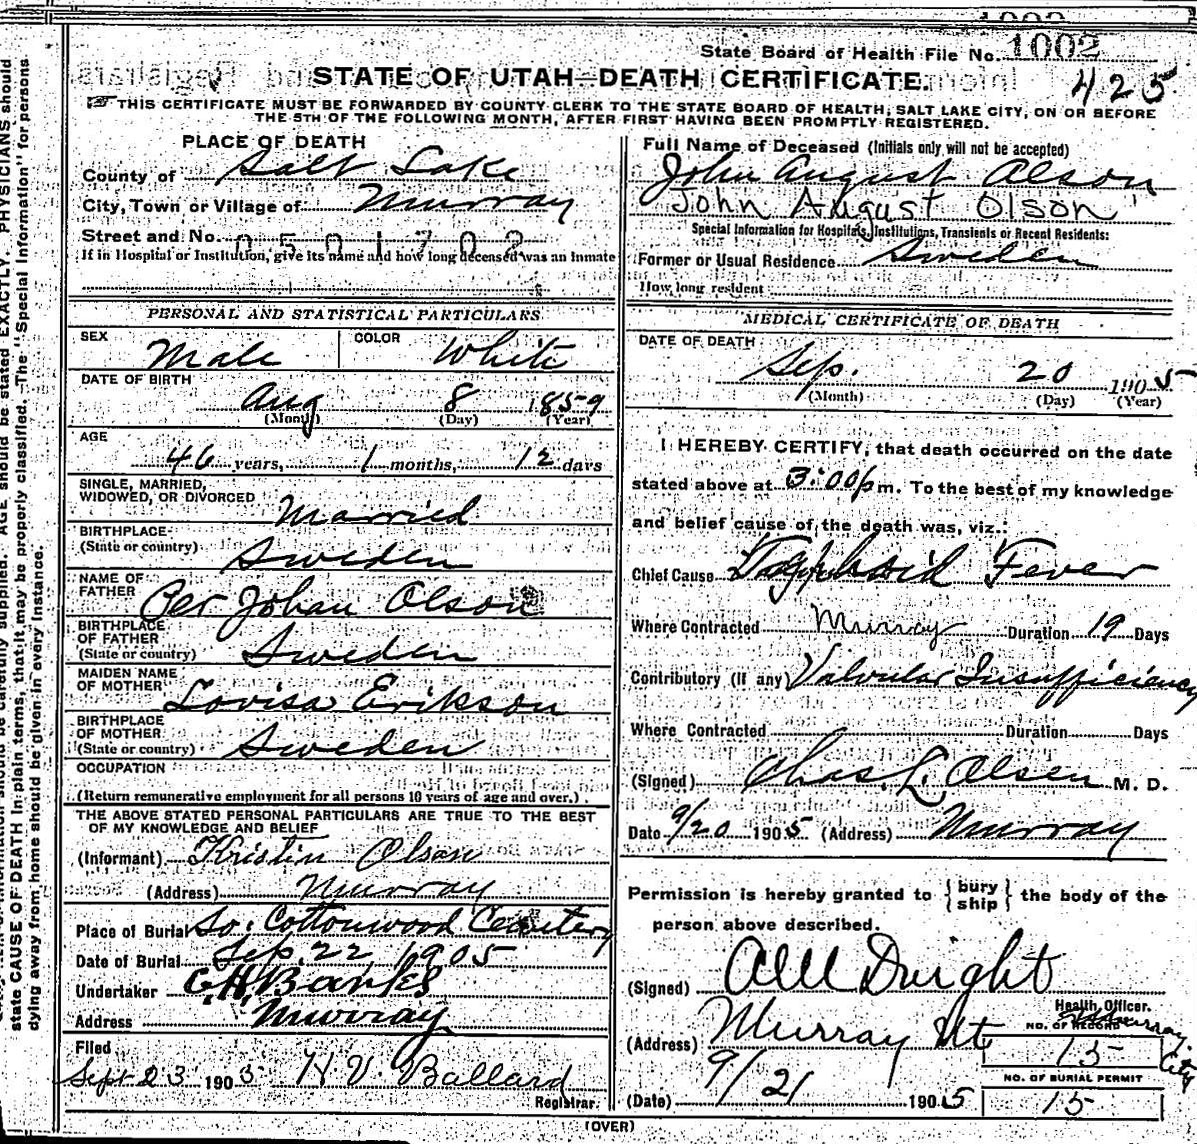 1002
State Board of Health File No. 1002
STATE OF UTAH—DEATH CERTIFICATE.
425
THIS CERTIFICATE MUST BE FORWARDED BY COUNTY CLERK TO THE STATE BOARD OF HEALTH, SALT LAKE CITY, ON OR BEFORE
THE 5TH OF THE FOLLOWING MONTH, AFTER FIRST HAVING BEEN PROMPTLY REGISTERED.
PLACE OF DEATH
County of Salt Lake
City, Town or Village of Murray
Street and No. 0501702
If in Hospital or Institution, give its name and how long deceased was an Inmate
PERSONAL AND STATISTICAL PARTICULARS
SEX Male COLOR White
DATE OF BIRTH
Aug 8 1859
(Month) (Day) (Year)
AGE
46 years, 1 months, 12 days
SINGLE, MARRIED,
WIDOWED, OR DIVORCED Married
BIRTHPLACE
(State or country) Sweden
NAME OF
FATHER Per Johan Olson
BIRTHPLACE
OF FATHER
(State or country) Sweden
MAIDEN NAME
OF MOTHER Lovisa Erikson
BIRTHPLACE
OF MOTHER
(State or country) Sweden
OCCUPATION
(Return remunerative employment for all persons 10 years of age and over.)
THE ABOVE STATED PERSONAL PARTICULARS ARE TRUE TO THE BEST
OF MY KNOWLEDGE AND BELIEF
(Informant) Kristin Olson
(Address) Murray
Place of Burial So. Cottonwood Cemetery
Date of Burial Sep. 22, 1905
Undertaker G. H. Banks
Address Murray
Filed
Sept 23 1905 H. V. Ballard
Registrar.
Full Name of Deceased (Initials only will not be accepted)
John August Olson
John August Olson
Special Information for Hospitals, Institutions, Transients or Recent Residents:
Former or Usual Residence Sweden
How long resident
MEDICAL CERTIFICATE OF DEATH
DATE OF DEATH
Sep. 20 1905
(Month) (Day) (Year)
I HEREBY CERTIFY, that death occurred on the date
stated above at 3:00 p m. To the best of my knowledge
and belief cause of the death was, viz.:
Chief Cause Typhoid Fever
Where Contracted Murray Duration 19 Days
Contributory (if any) Valvular Insufficiency
Where Contracted Duration Days
(Signed) Chas. L. Olsen M. D.
Date 9/20 1905 (Address) Murray
Permission is hereby granted to {bury ship} the body of the
person above described.
(Signed) Dwight
Health Officer.
Murray City
(Address) Murray Ut
NO. OF RECORD
15
(Date) 9/21 1905
NO. OF BURIAL PERMIT
15
(OVER)
state CAUSE OF DEATH in plain terms, that it may be properly classified. The "Special Information" for persons
dying away from home should be given in every instance.